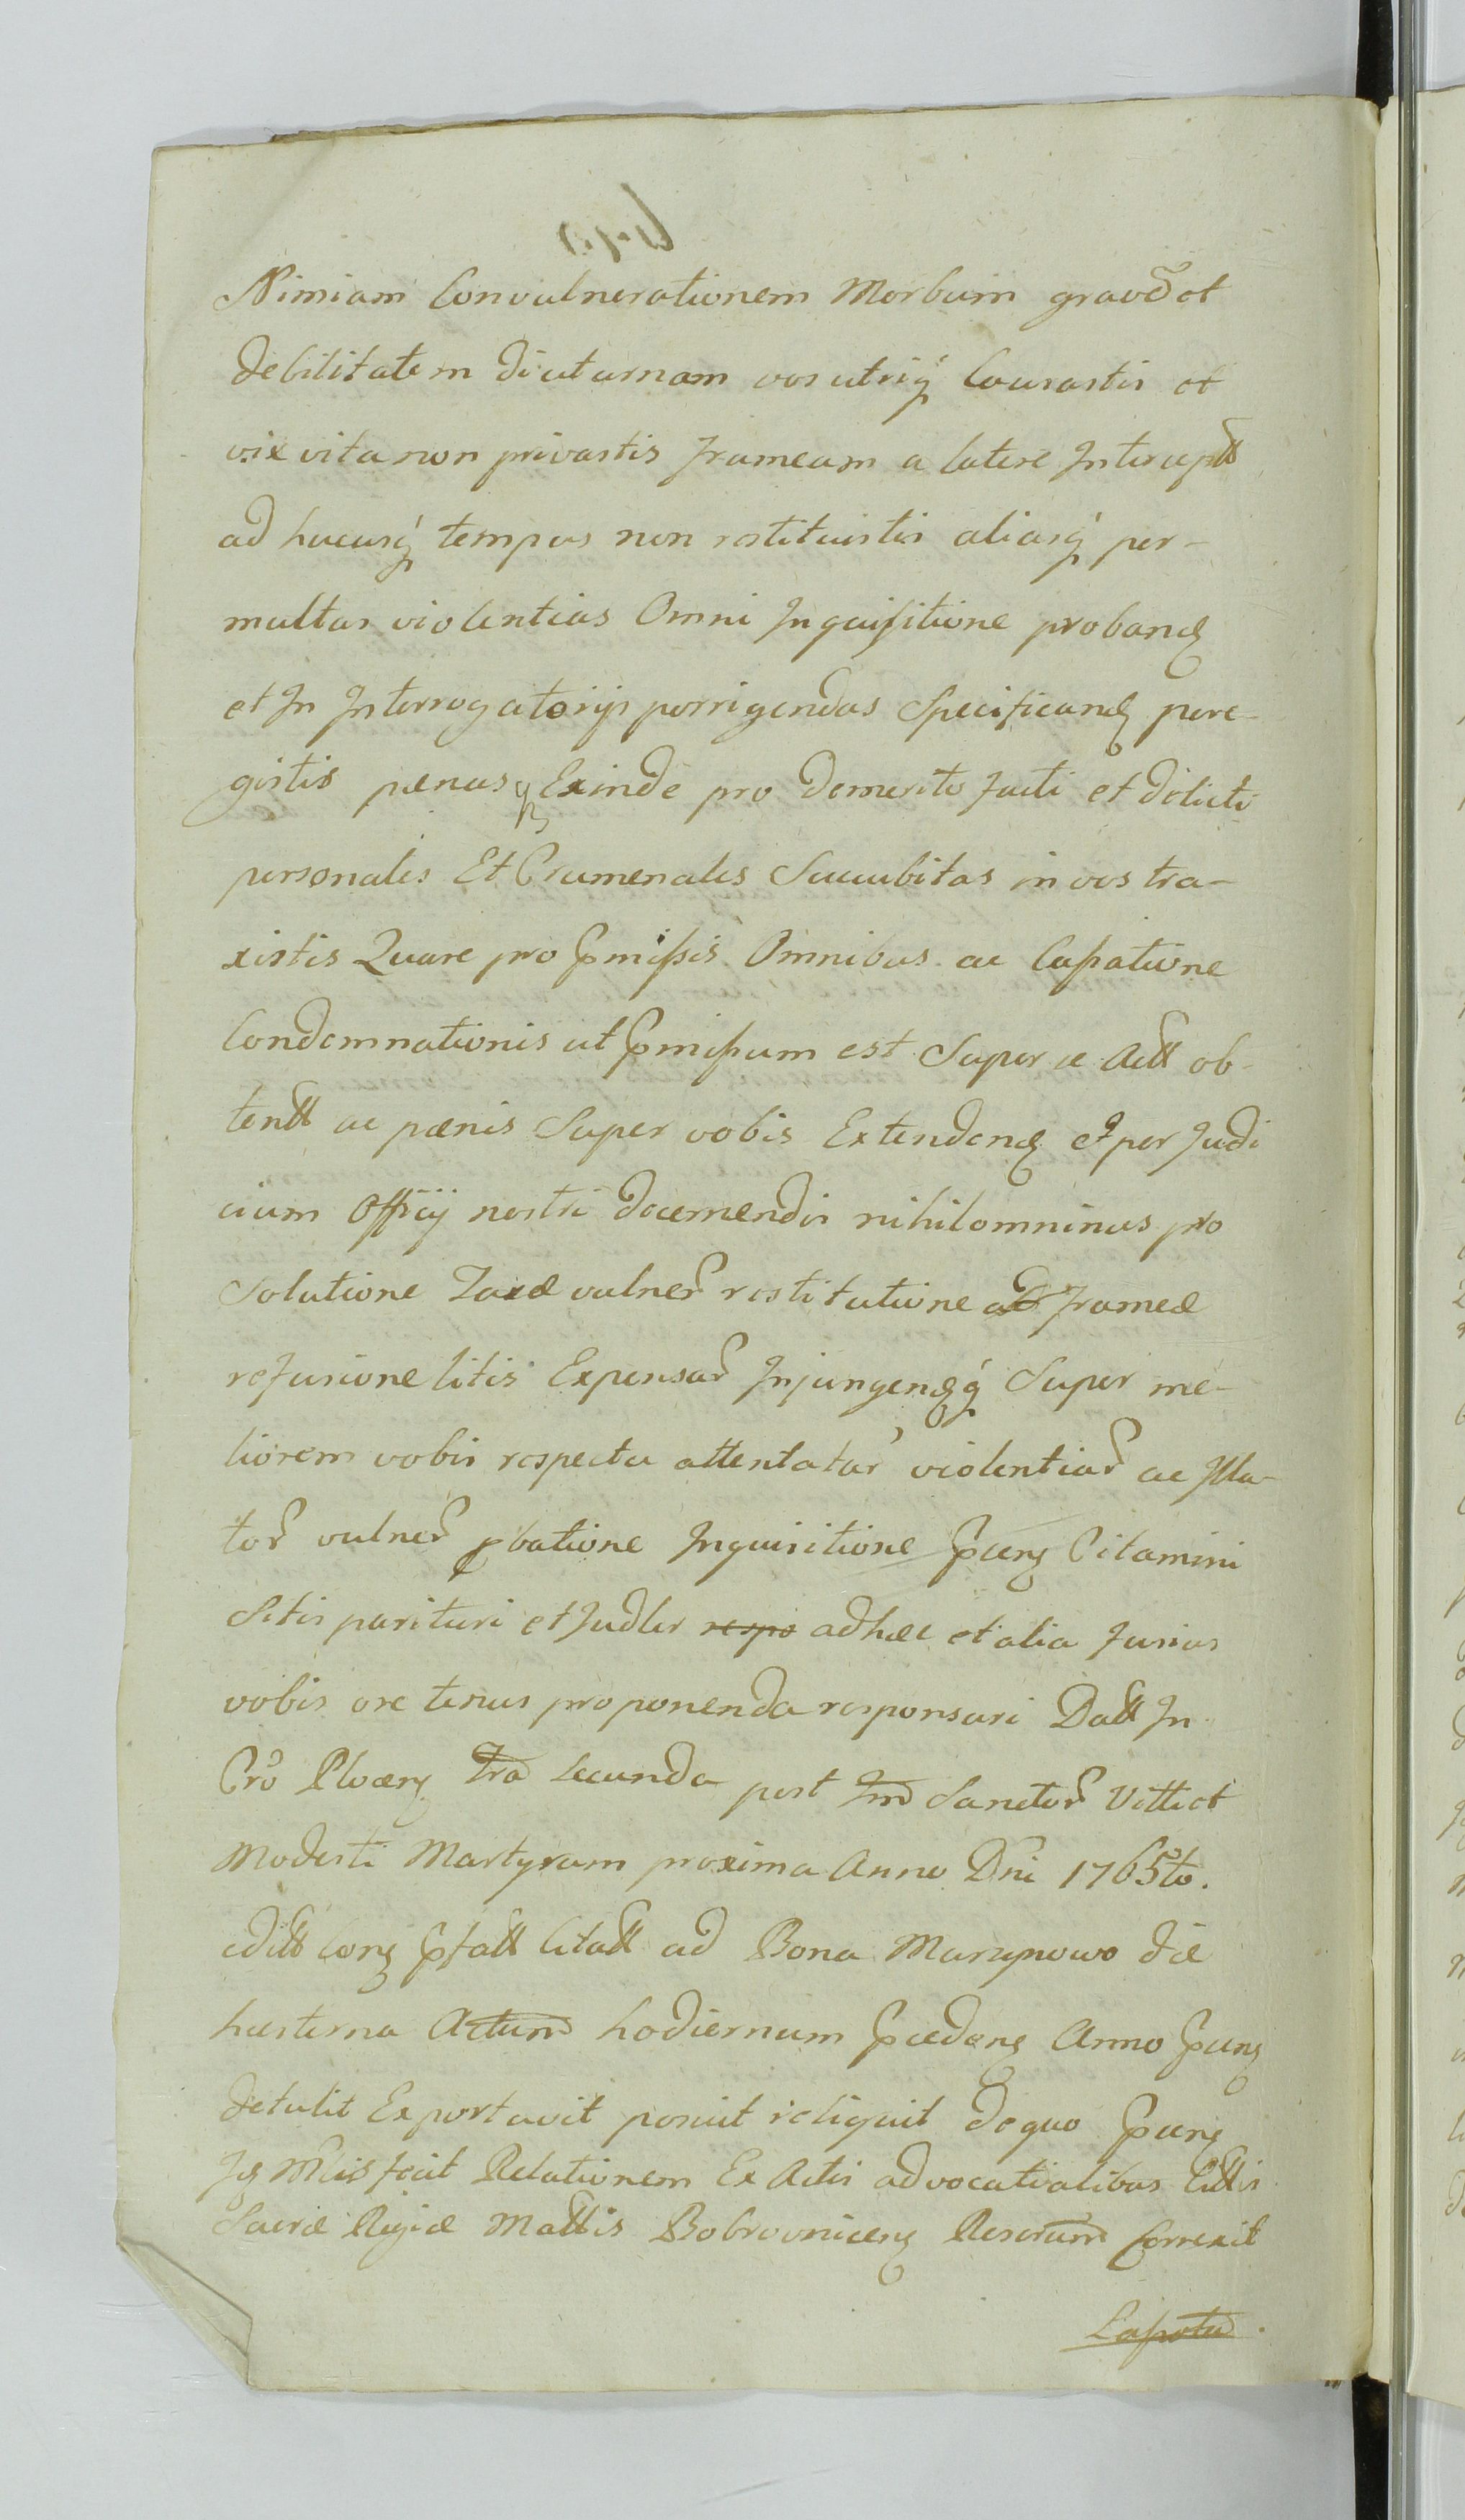 Nimiam Convulnerationem Morbum gravẽ et
debilitatem diuturnam vos utriq́ Causastis et
vix vita non privastis frameam a latere Interceptt
ad hucusq́ tempus non restituistis aliasq́ per-
multas violentias Omni Inquisitione proband
et In Interrogatorijs porrigendas Specificand pere-
gistis pænasq Exinde pro demerito facti et delicti
personales Et Crumenales Succubitas in vos tra-
xistis Quare pro pmissis Omnibus ac Cassatione
Condemnationis ut pmissum est Super se Actt ob-
tentt ac pænis Super vobis Extendend et per Judi
cium Officij nostri decernendis nihilominus pro
Solutione Taxæ vulner restitutione frameæ
refusione litis Expensar Injungendq́ Super me-
liorem vobis respectu attentatar violentiar ac Illa-
tor vulner pbatione Inquisitione pten Citamini
Sitis parituri et Judler respo ad hæc et alia fusius
vobis ore tenus proponenda responsuri Datt In
Crõ Plocen fra secunda post fm Sanctor Vitti et
Modesti Martyrum proxima Anno Dni 1765to.
iditt Con pfatt Citatt ad Bona Murzynowo die
hesterna Actum hodiernum pceden Anno pten
detulit Exportavit posuit reliquit de quo pten
Is Mrlis fecit Relationem Ex Actis advocatialibus Cittis
Sacræ Regiæ Mattis Bobrovnicen Rescrum Correxit
Lapota